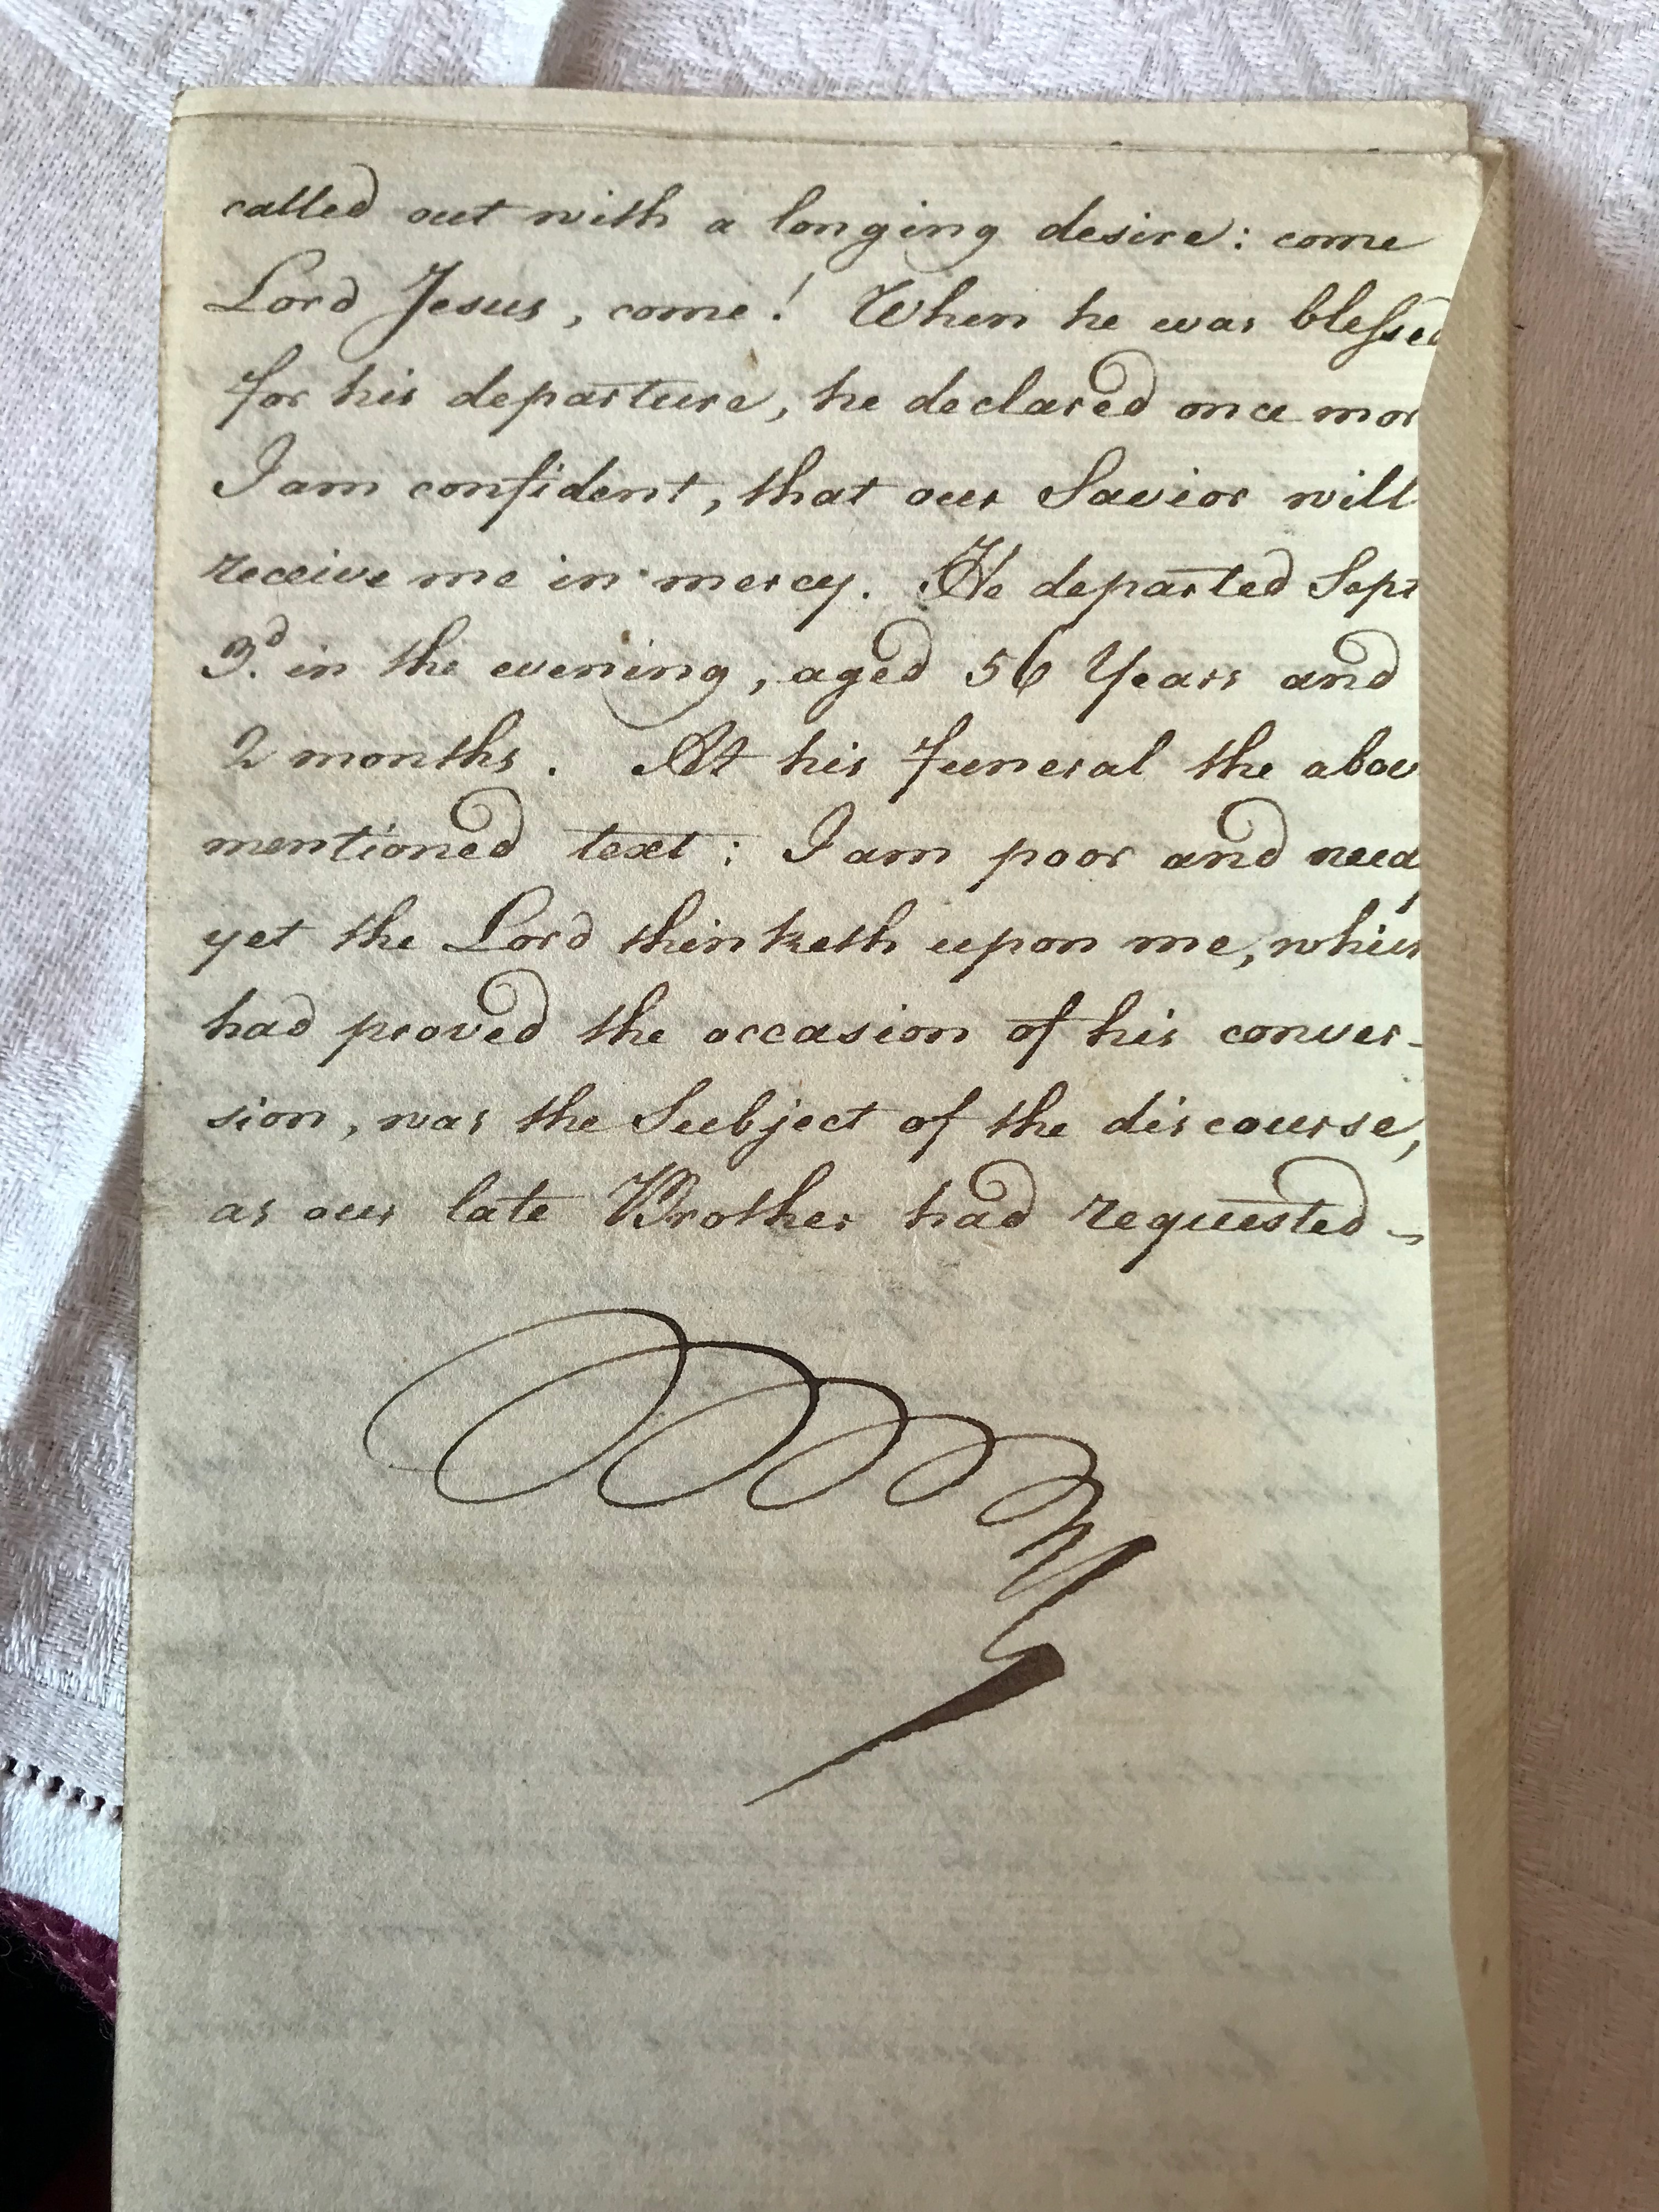 called out with a longing desire: come
Lord Jesus, come! When he was blessed
for his departure, he declared once mor
I am confident, that our Savior will
receive me in mercy. He departed Sept
3.d in the evening, aged 56 Years and
2 months. At his funeral the abov
mentioned text: I am poor and need
yet the Lord thinketh upon me, which
had proved the occasion of his conver-
sion, was the Subject of the discourse,
as our late Brother had requested